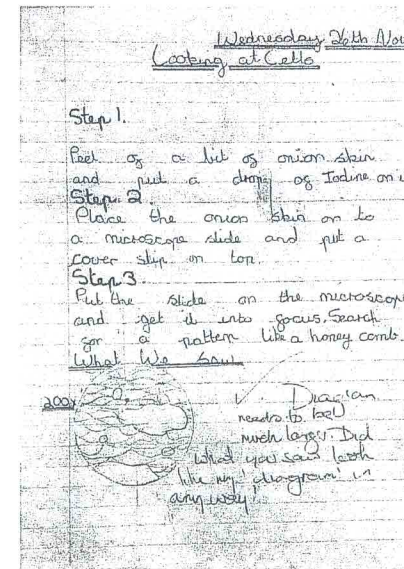 Wednesday 26th Nov
Looking at Cells
Step 1.
Peel of a bit of onion skin
and put a drop of Iodine on i
Step. 2
Place the onion skin on to
a microscope slide and put a
cover slip on top.
Step 3.
Put the slide on the microscop
and get it into focus. Search
for a pattern like a honey comb.
What We Saw
200x
Diagram
needs to be
much larger. Did
what you saw look
like my 'diagram' in
any way?